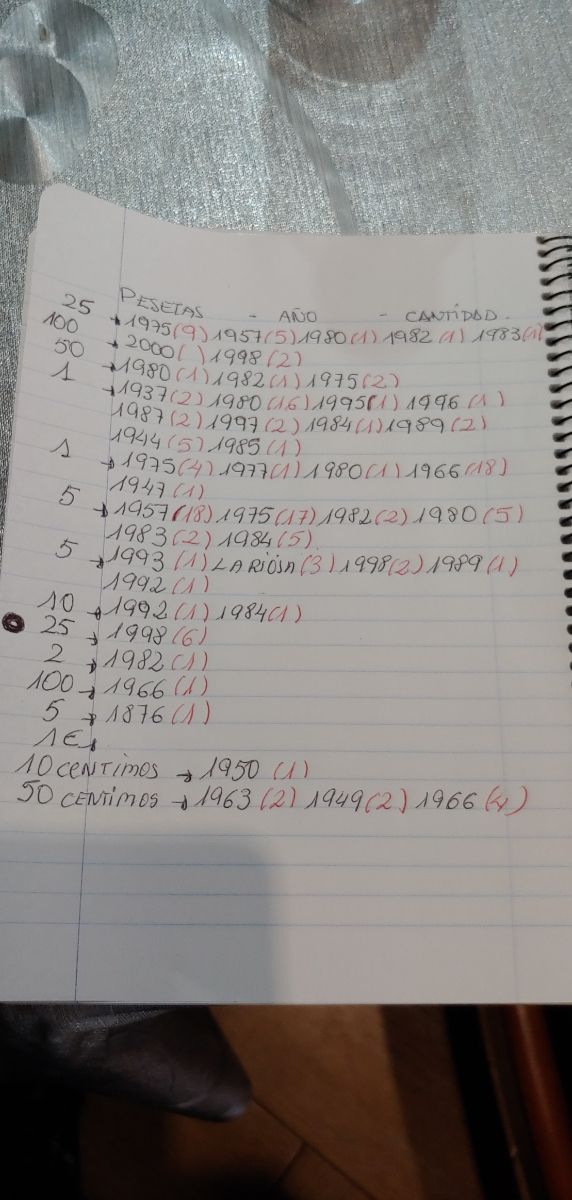 PESETAS - AÑO - CANTIDAD.
25 → 1975(9) 1957(5) 1980(1) 1982(1) 1983(1)
100 → 2000( ) 1998(2)
50 → 1980(1) 1982(1) 1975(2)
1 → 1937(2) 1980(16) 1995(1) 1996(1)
1987(2) 1997(2) 1984(1) 1989(2)
1944(5) 1985(1)
1 → 1975(4) 1977(1) 1980(1) 1966(18)
1947(1)
5 → 1957(18) 1975(17) 1982(2) 1980(5)
1983(2) 1984(5)
5 → 1993(1) LA RIOJA(3) 1998(2) 1989(1)
1992(1)
10 → 1992(1) 1984(1)
25 → 1998(6)
2 → 1982(1)
100 → 1966(1)
5 → 1876(1)
1€ →
10 CENTIMOS → 1950(1)
50 CENTIMOS → 1963(2) 1949(2) 1966(4)